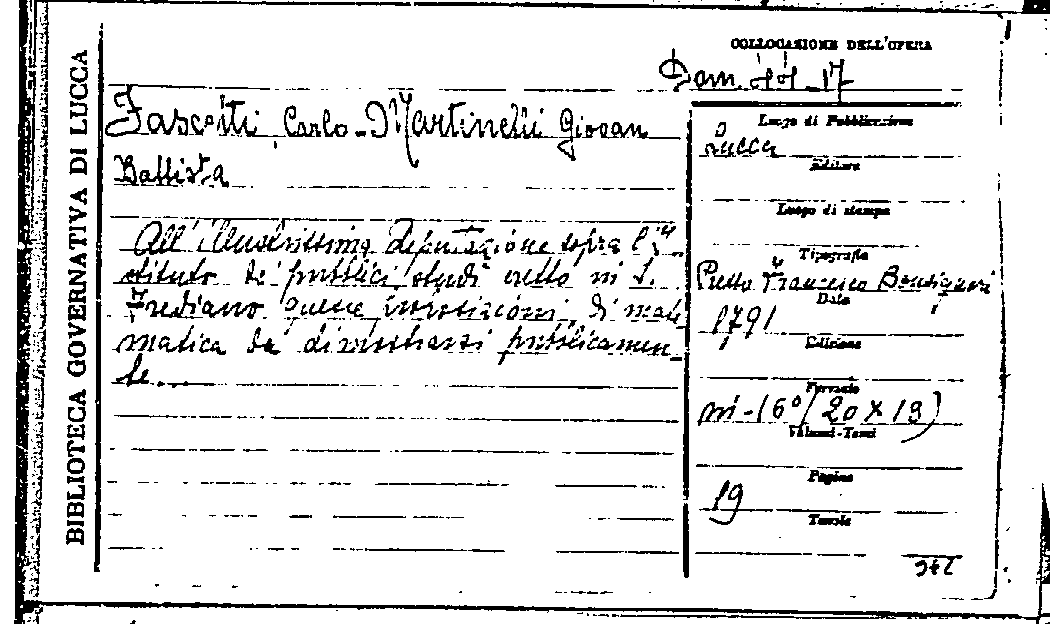 BIBLIOTECA GOVERNATIVA DI LUCCA
COLLOCASIONE DELL'OPERA
Carlo - Martinelli Giovan
Battista
All' illustrissima Deputazione sopra l'is
stituto de' pubblici studi eretto in S.
Frediano queste di mate
matica da dimostrarsi pubblicamen_
te...
Luogo di Pubblicazione
Lucca
Editore
Luogo di stampa
Tipografia
Presso Francesco Bonsignori
Data
1791
Edizione
Formato
in-16° (20 X 13)
Volumi-Tomi
Pagine
19
Tavole